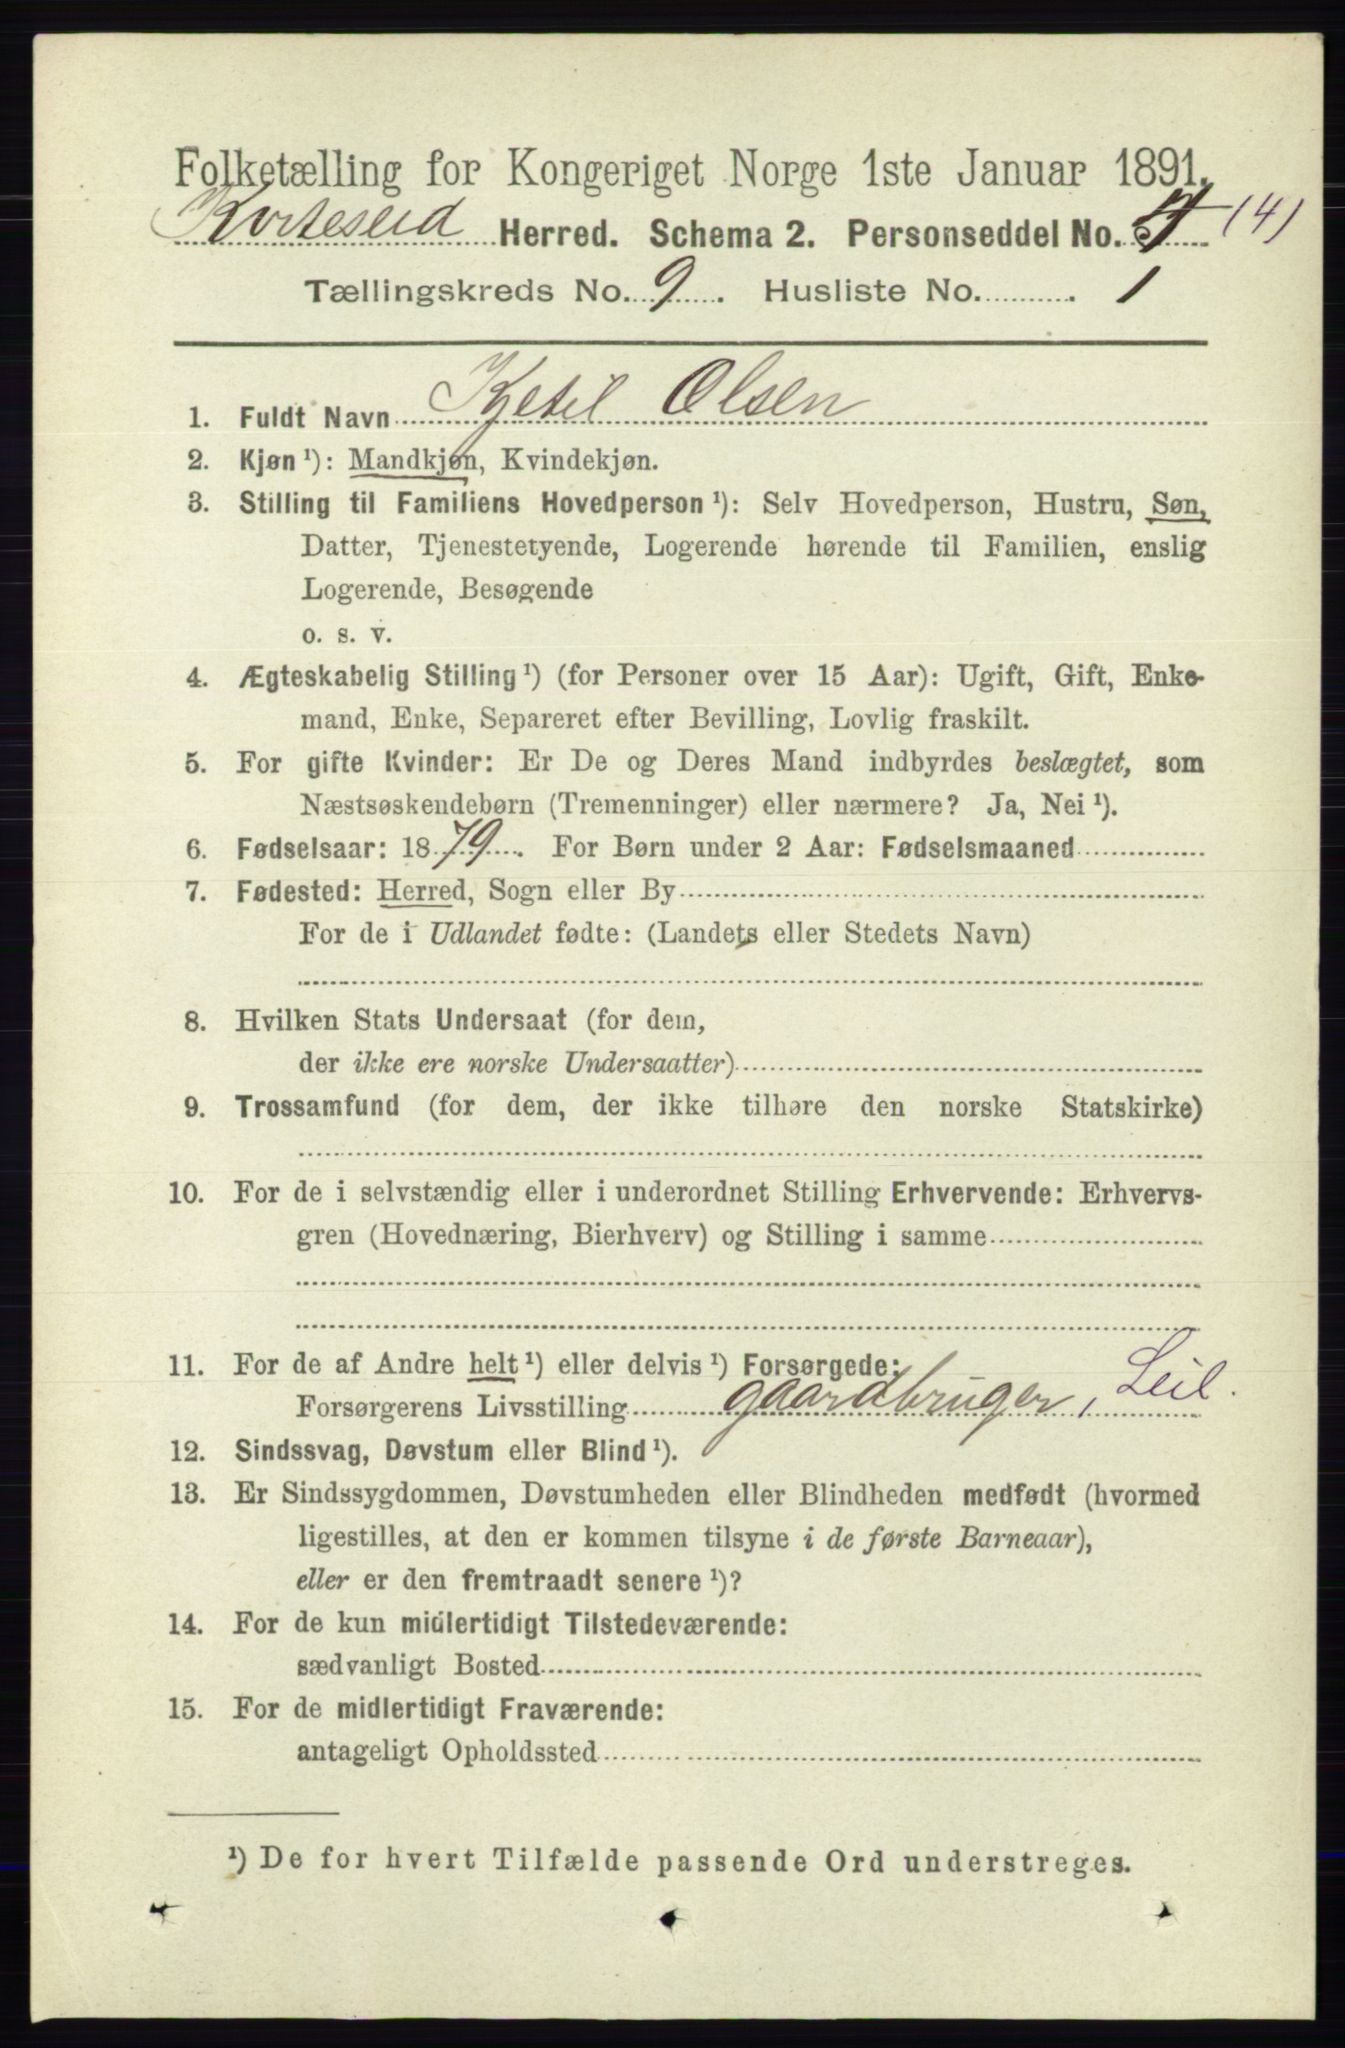 Folketælling for Kongeriget Norge 1ste Januar 1891.
Kviteseid Herred. Schema 2. Personseddel No. (4)
Tællingskreds No. 9. Husliste No. 1
1. Fuldt Navn Kjetil Olsen
2. Kjøn ¹): Mandkjøn, Kvindekjøn.
3. Stilling til Familiens Hovedperson ¹): Selv Hovedperson, Hustru, Søn,
Datter, Tjenestetyende, Logerende hørende til Familien, enslig
Logerende, Besøgende
o. s. v.
4. Ægteskabelig Stilling ¹) (for Personer over 15 Aar): Ugift, Gift, Enke-
mand, Enke, Separeret efter Bevilling, Lovlig fraskilt.
5. For gifte Kvinder: Er De og Deres Mand indbyrdes beslægtet, som
Næstsøskendebørn (Tremenninger) eller nærmere? Ja, Nei ¹).
6. Fødselsaar: 1879. For Børn under 2 Aar: Fødselsmaaned
7. Fødested: Herred, Sogn eller By
For de i Udlandet fødte: (Landets eller Stedets Navn)
8. Hvilken Stats Undersaat (for dem,
der ikke ere norske Undersaatter)
9. Trossamfund (for dem, der ikke tilhøre den norske Statskirke)
10. For de i selvstændig eller i underordnet Stilling Erhvervende: Erhvervs-
gren (Hovednæring, Bierhverv) og Stilling i samme
11. For de af Andre helt ¹) eller delvis ¹) Forsørgede:
Forsørgerens Livsstilling gaardbruger, Leil.
12. Sindssvag, Døvstum eller Blind ¹).
13. Er Sindssygdommen, Døvstumheden eller Blindheden medfødt (hvormed
ligestilles, at den er kommen tilsyne i de første Barneaar),
eller er den fremtraadt senere ¹)?
14. For de kun midlertidigt Tilstedeværende:
sædvanligt Bosted
15. For de midlertidigt Fraværende:
antageligt Opholdssted
¹) De for hvert Tilfælde passende Ord understreges.